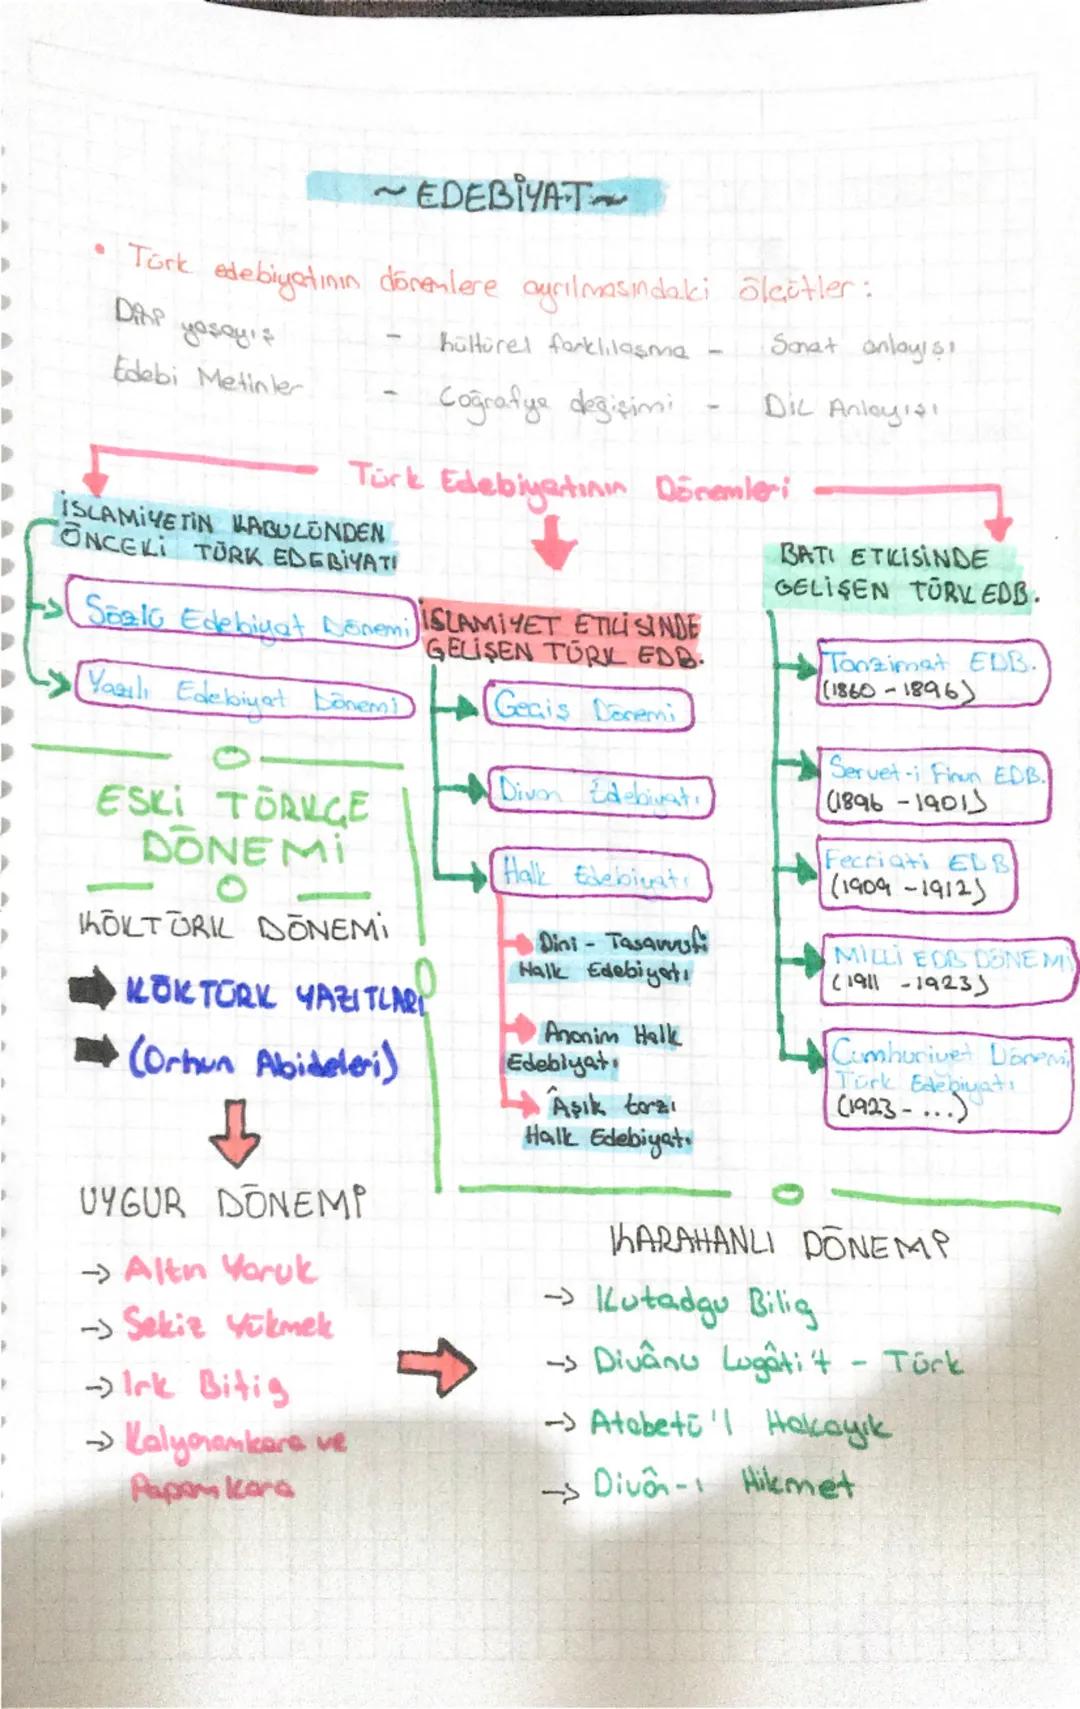 ~ EDEBİYAT ~
• Türk edebiyatının dönemlere ayrılmasındaki ölçütler:
Dini yaşayış - Kültürel farklılaşma - Sanat anlayışı
Edebi Metinler - Coğrafya değişimi - DİL Anlayışı
Türk Edebiyatının Dönemleri
İSLAMİYETİN KABULÜNDEN
ÖNCEKİ TÜRK EDEBİYATI
Sözlü Edebiyat Dönemi
Yazılı Edebiyat Dönemi
İSLAMİYET ETKİSİNDE
GELİŞEN TÜRK EDB.
Geçiş Dönemi
Divan Edebiyatı
Halk Edebiyatı
Dini - Tasavvufi
Halk Edebiyatı
Anonim Halk
Edebiyatı
Âşık tarzı
Halk Edebiyatı
BATI ETKİSİNDE
GELİŞEN TÜRK EDB.
Tanzimat EDB.
(1860 - 1896)
Servet-i Finun EDB.
(1896 - 1901)
Fecriati EDB
(1909 - 1912)
MİLLİ EDB DÖNEMİ
(1911 - 1923)
Cumhuriyet Dönemi
Türk Edebiyatı
(1923 - ...)
ESKİ TÜRKÇE
DÖNEMİ
KÖKTÜRK DÖNEMİ
KÖKTÜRK YAZITLARI
(Orhun Abideleri)
UYGUR DÖNEMİ
→ Altın Yaruk
→ Sekiz Yükmek
→ Irk Bitig
→ Kalyanamkara ve
Papamkara
KARAHANLI DÖNEMİ
→ Kutadgu Bilig
→ Divânu Lugâti't - Türk
→ Atabetü'l Hakayık
→ Divân-ı Hikmet